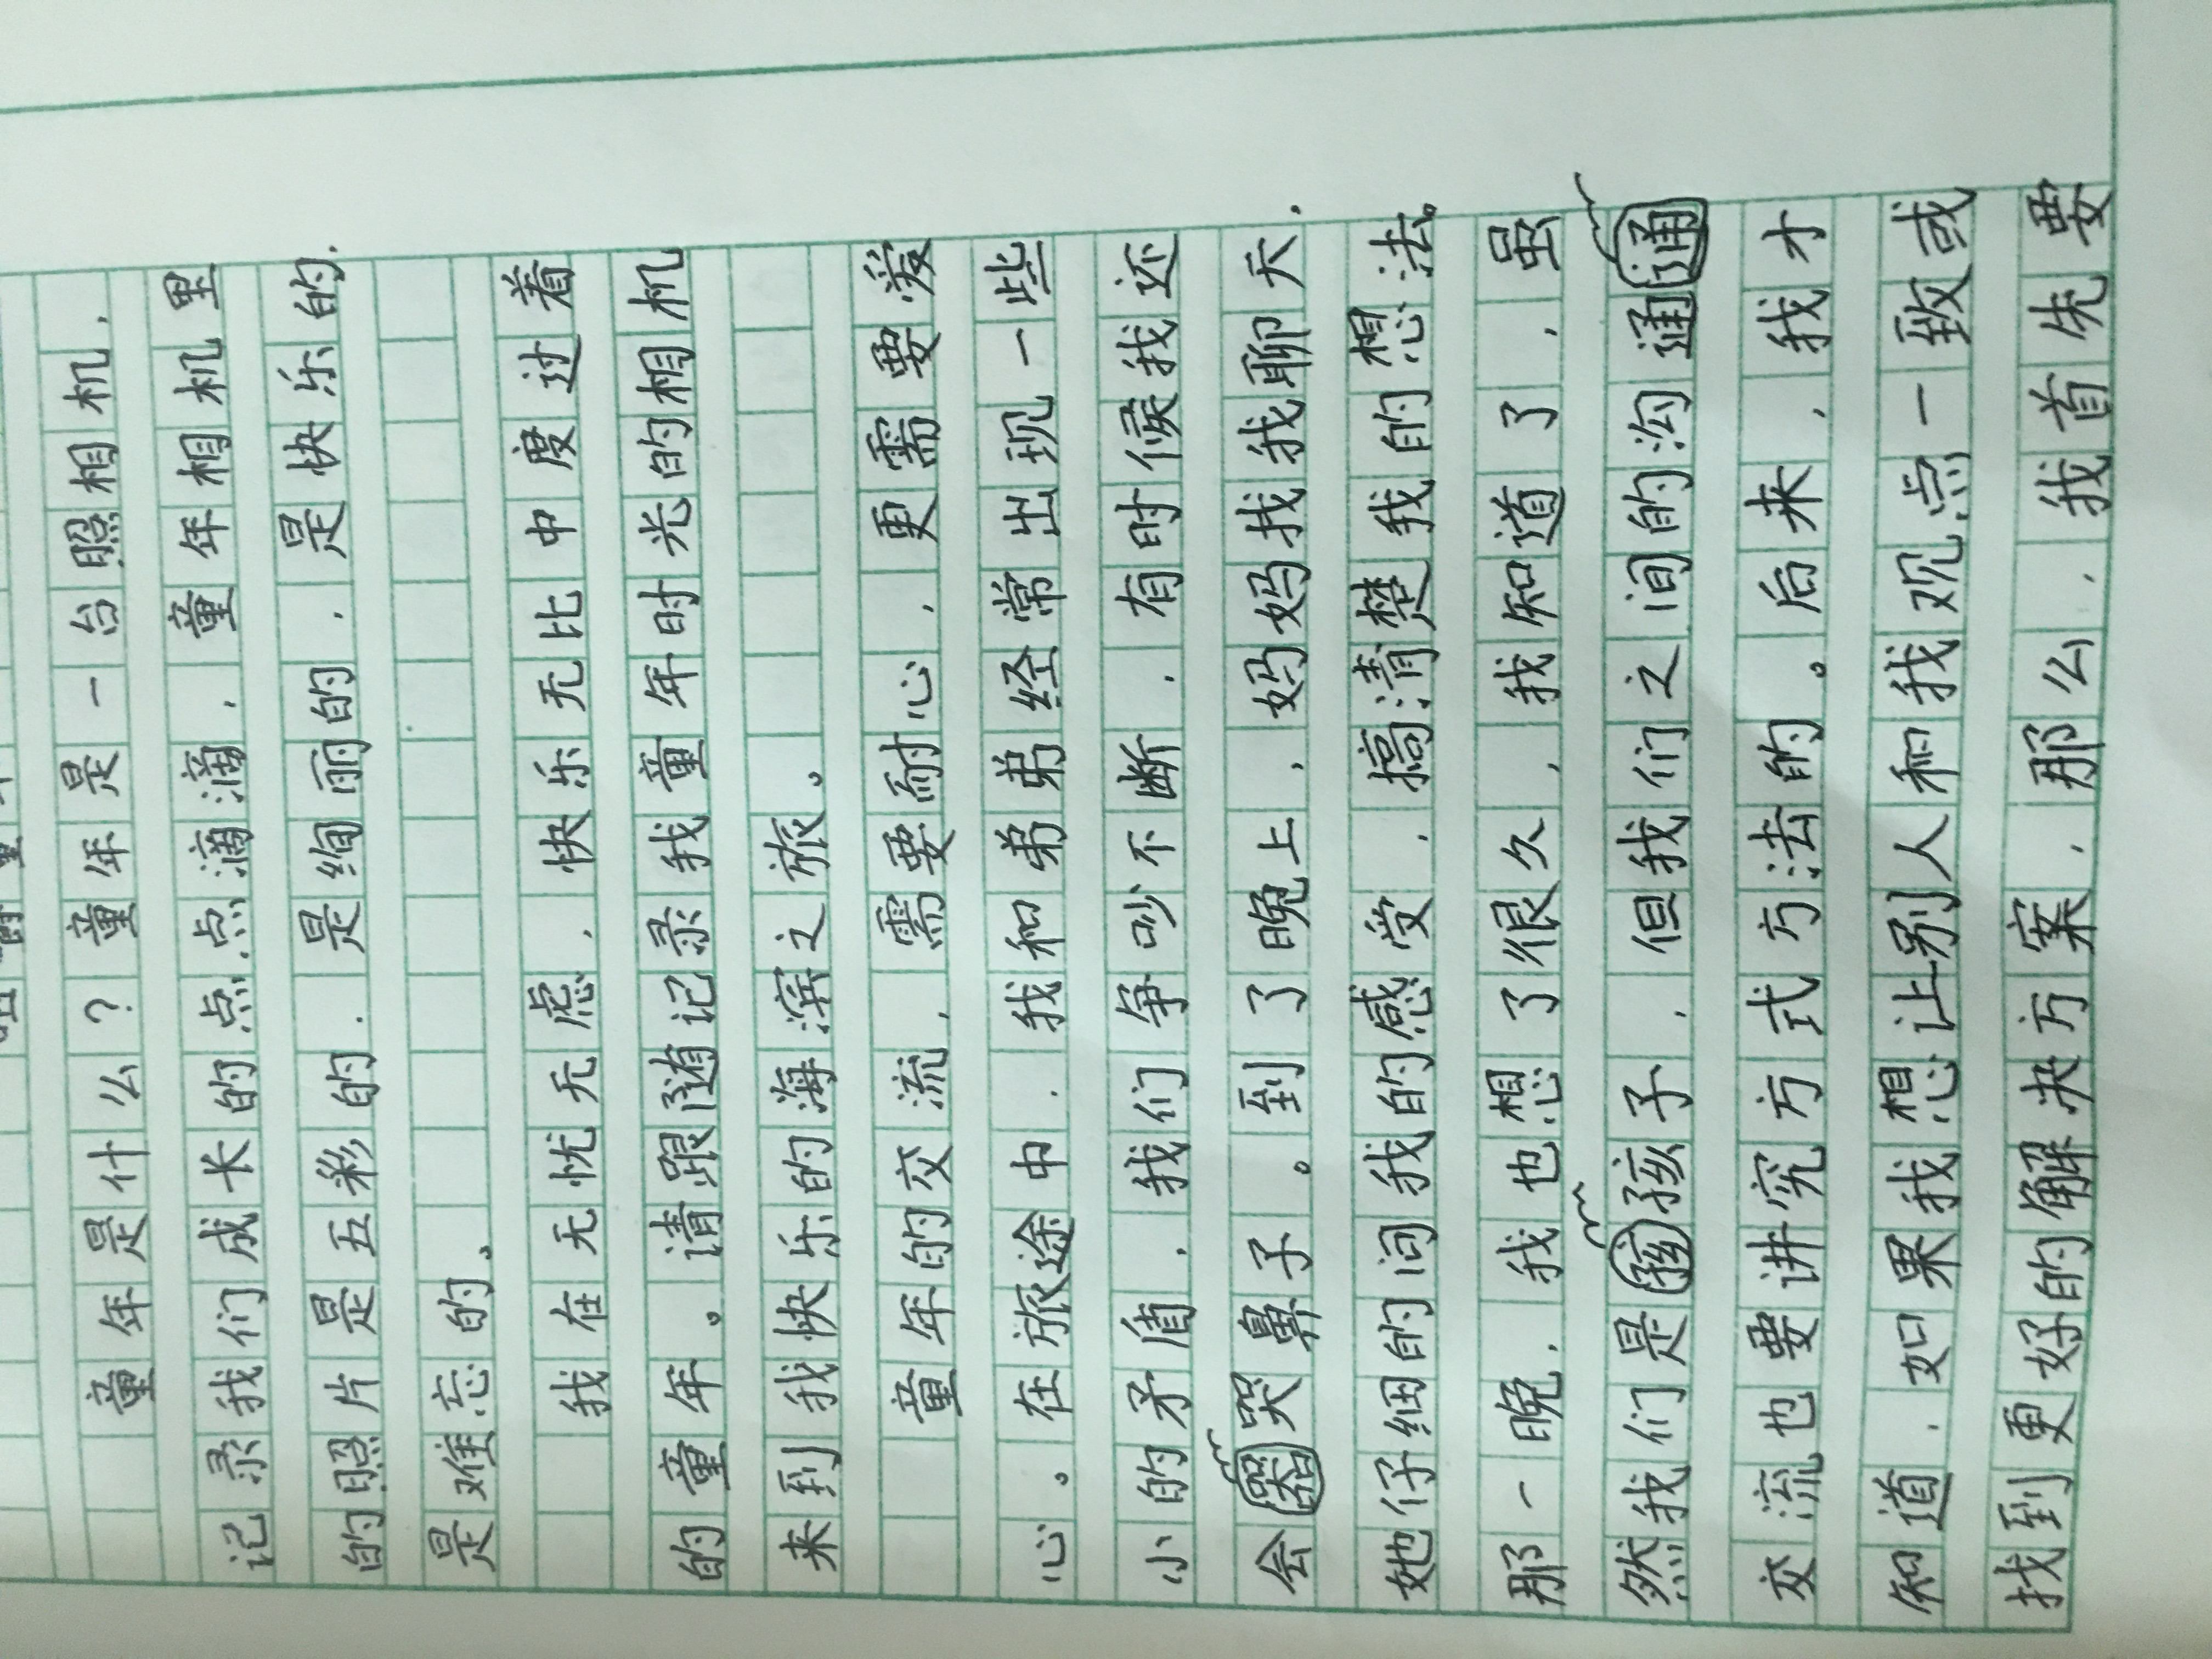 童年是什么？童年是一台照相机，
记录我们成长的点点滴滴，童年相机里
的照片是五彩的，是绚丽的，是快乐的，
是难忘的。
我在无忧无虑，快乐无比中度过着
的童年。请跟随记录我童年时光的相机
来到我快乐的海滨之旅。
童年的交流，需要耐心，更需要爱
心。在旅途中，我和弟弟经常出现一些
小的矛盾，我们争吵不断，有时候我还
会哭鼻子。到了晚上，妈妈找我聊天，
她仔细的问我的感受，搞清楚我的想法。
那一晚，我也想了很久，我知道了，虽
然我们是孩子，但我们之间的沟通
交流也要讲究方式方法的。后来，我才
知道，如果我想让别人和我观点一致或
找到更好的解决方案，那么，我首先要